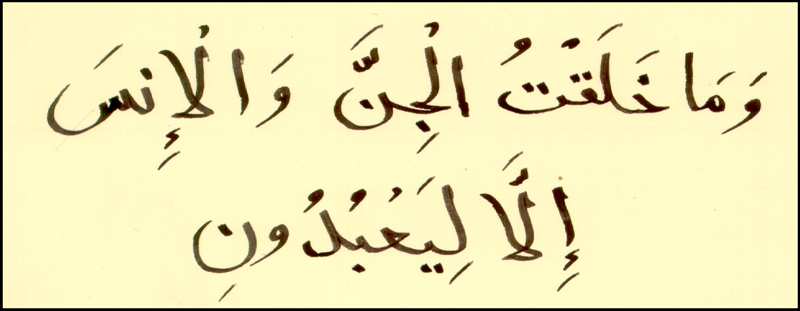 وَمَا خَلَقْتُ الْجِنَّ وَالْإِنسَ
إِلَّا لِيَعْبُدُونِ